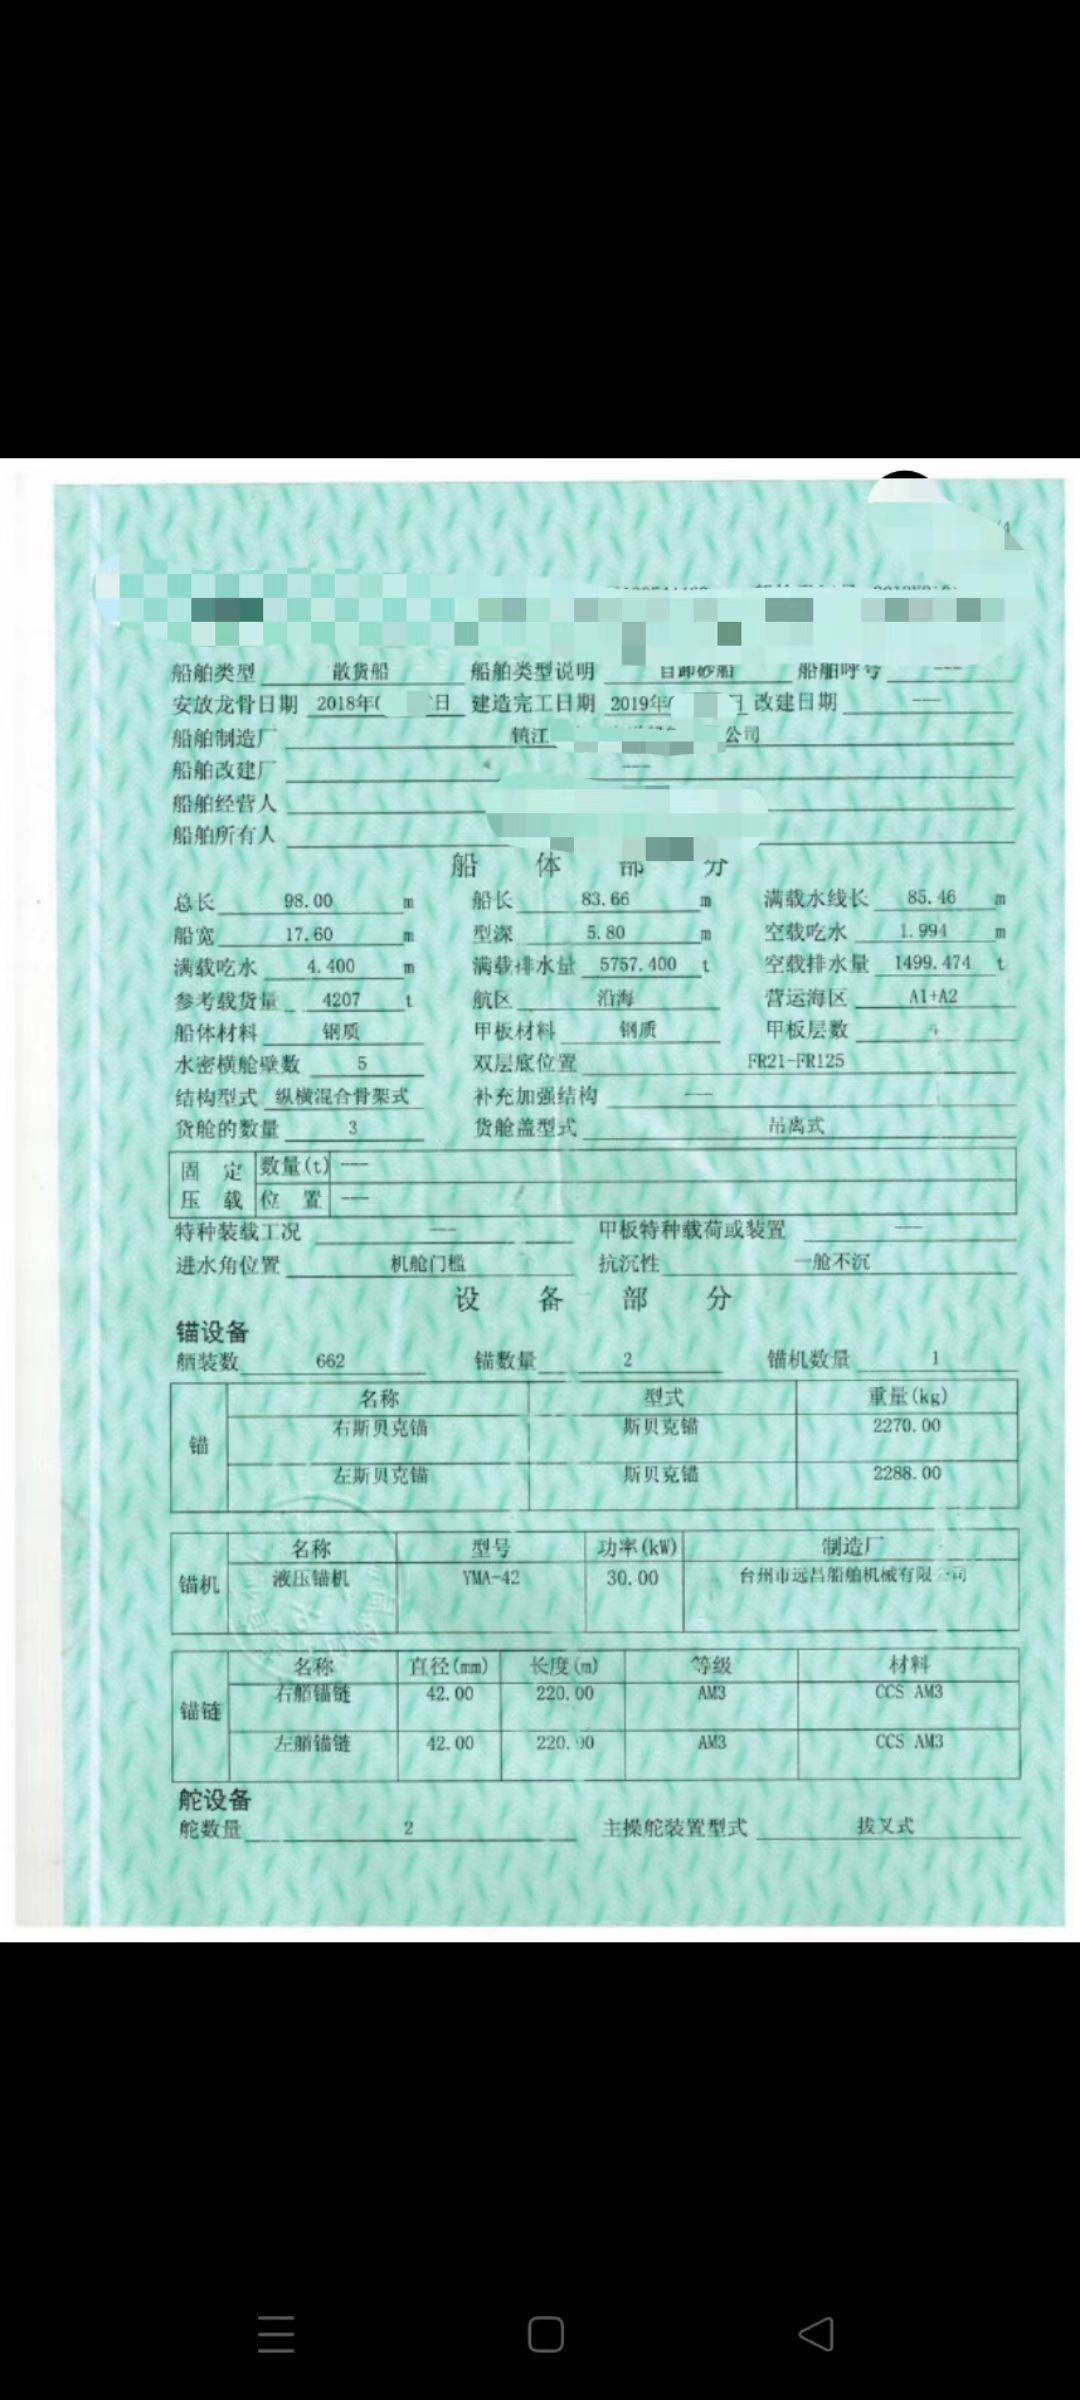 船舶类型 散货船 船舶类型说明 自卸砂船 船舶呼号 ---
安放龙骨日期 2018年 日 建造完工日期 2019年 日 改建日期 ---
船舶制造厂 镇江 公司
船舶改建厂 ---
船舶经营人
船舶所有人
船 体 部 分
总长 98.00 m 船长 83.66 m 满载水线长 85.46 m
船宽 17.60 m 型深 5.80 m 空载吃水 1.994 m
满载吃水 4.400 m 满载排水量 5757.400 t 空载排水量 1499.474 t
参考载货量 4207 t 航区 沿海 营运海区 A1+A2
船体材料 钢质 甲板材料 钢质 甲板层数
水密横舱壁数 5 双层底位置 FR21-FR125
结构型式 纵横混合骨架式 补充加强结构 ---
货舱的数量 3 货舱盖型式 吊离式
固 定 数量(t) ---
压 载 位 置 ---
特种装载工况 --- 甲板特种载荷或装置 ---
进水角位置 机舱门槛 抗沉性 一舱不沉
设 备 部 分
锚设备
舾装数 662 锚数量 2 锚机数量 1
名称 型式 重量(kg)
锚
右斯贝克锚 斯贝克锚 2270.00
左斯贝克锚 斯贝克锚 2288.00
名称 型号 功率(kW) 制造厂
锚机 液压锚机 YMA-42 30.00 台州市远昌船舶机械有限公司
名称 直径(mm) 长度(m) 等级 材料
锚链
右艏锚链 42.00 220.00 AM3 CCS AM3
左艏锚链 42.00 220.00 AM3 CCS AM3
舵设备
舵数量 2 主操舵装置型式 拨叉式